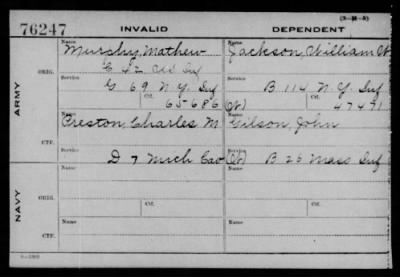 (3-M-5)
76247 INVALID DEPENDENT
Name Name
Murphy, Mathew Jackson, William W.
ORIG. C 42 Inf
Service Service
ARMY G 69 N.Y. Inf B 114 N.Y. Inf
Ctf. 65-686 (W) Ctf. 47471
Name Name
Preston, Charles M Gilson, John
CTF. Service Service
D 7 Mich Cav (W) B 26 Mass Inf
Name Name
ORIG. Ctf. Ctf.
Service Service
NAVY
Name Name
CTF.